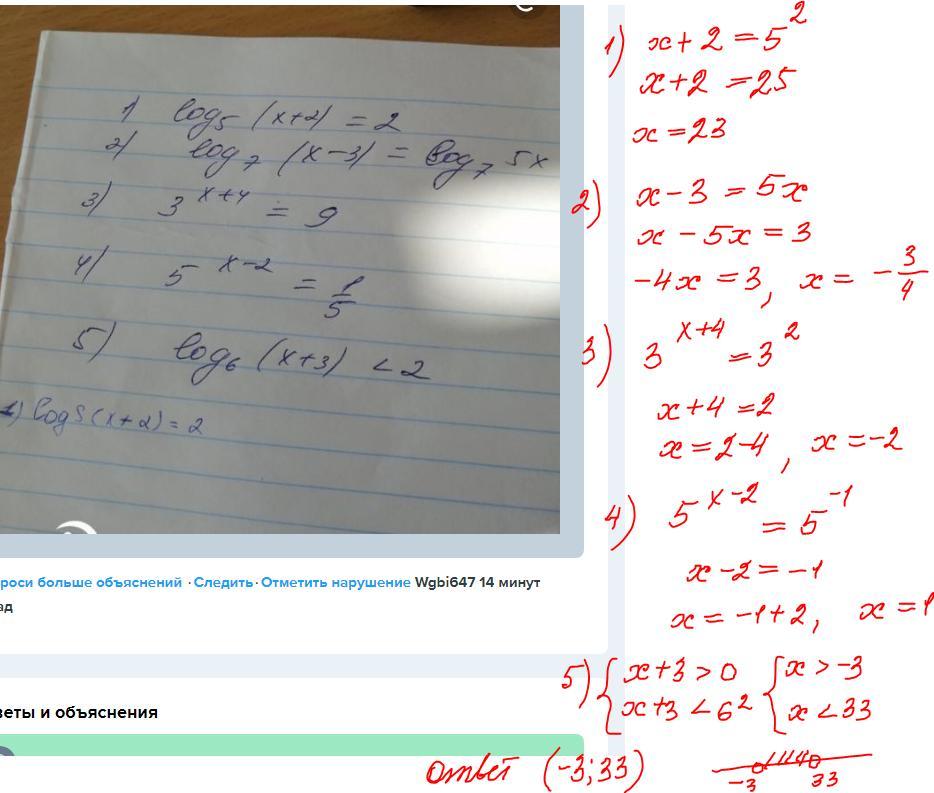 1) log₅ (x+2) = 2
2) log₇ (x-3) = log₇ 5x
3) 3^(x+4) = 9
4) 5^(x-2) = 1/5
5) log₆ (x+3) < 2
1) log5(x+2) = 2
роси больше объяснений · Следить · Отметить нарушение Wgbi647 14 минут
ад
веты и объяснения
1) x+2 = 5²
x+2 = 25
x = 23
2) x-3 = 5x
x - 5x = 3
-4x = 3, x = -3/4
3) 3^(x+4) = 3²
x+4 = 2
x = 2-4, x = -2
4) 5^(x-2) = 5^(-1)
x-2 = -1
x = -1+2, x = 1
5) { x+3 > 0 { x > -3
x+3 < 6² x < 33
ответ (-3; 33)
-3 33